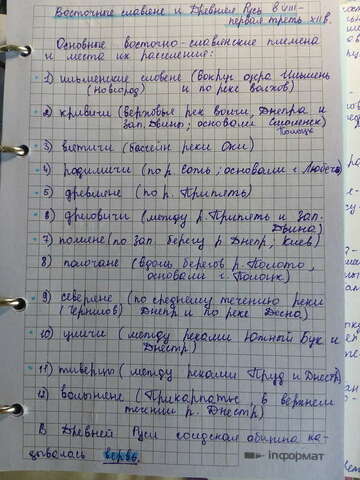 Восточные славяне и Древняя Русь в VIII -
первая треть XII в.
Основные восточно-славянские племена
и места их расселения:
1) ильменские словене (вокруг озера Ильмень
(Новгород) и по реке Волхов)
2) кривичи (верховье рек Волги, Днепра и
зап. Двины; основали Смоленск)
Полоцк
3) вятичи (бассейн реки Оки)
4) радимичи (по р. Сотв; основали г. Любеч)
5) древляне (по р. Припять)
6) дреговичи (между р. Припять и зап.
Двина)
7) поляне (по зап. берегу р. Днепр, Киев)
8) полочане (вдоль берегов р. Полота,
основали г. Полоцк)
9) северяне (по среднему течению реки
(Чернигов) Днепр и по реке Десна)
10) уличи (между реками Южный Буг и
Днестр)
11) тиверцы (между реками Пруд и Днестр)
12) волыняне (Прикарпатье, в верхнем
течении р. Днестр)
В Древней Руси соседская община на-
зывалась вервь.
информат